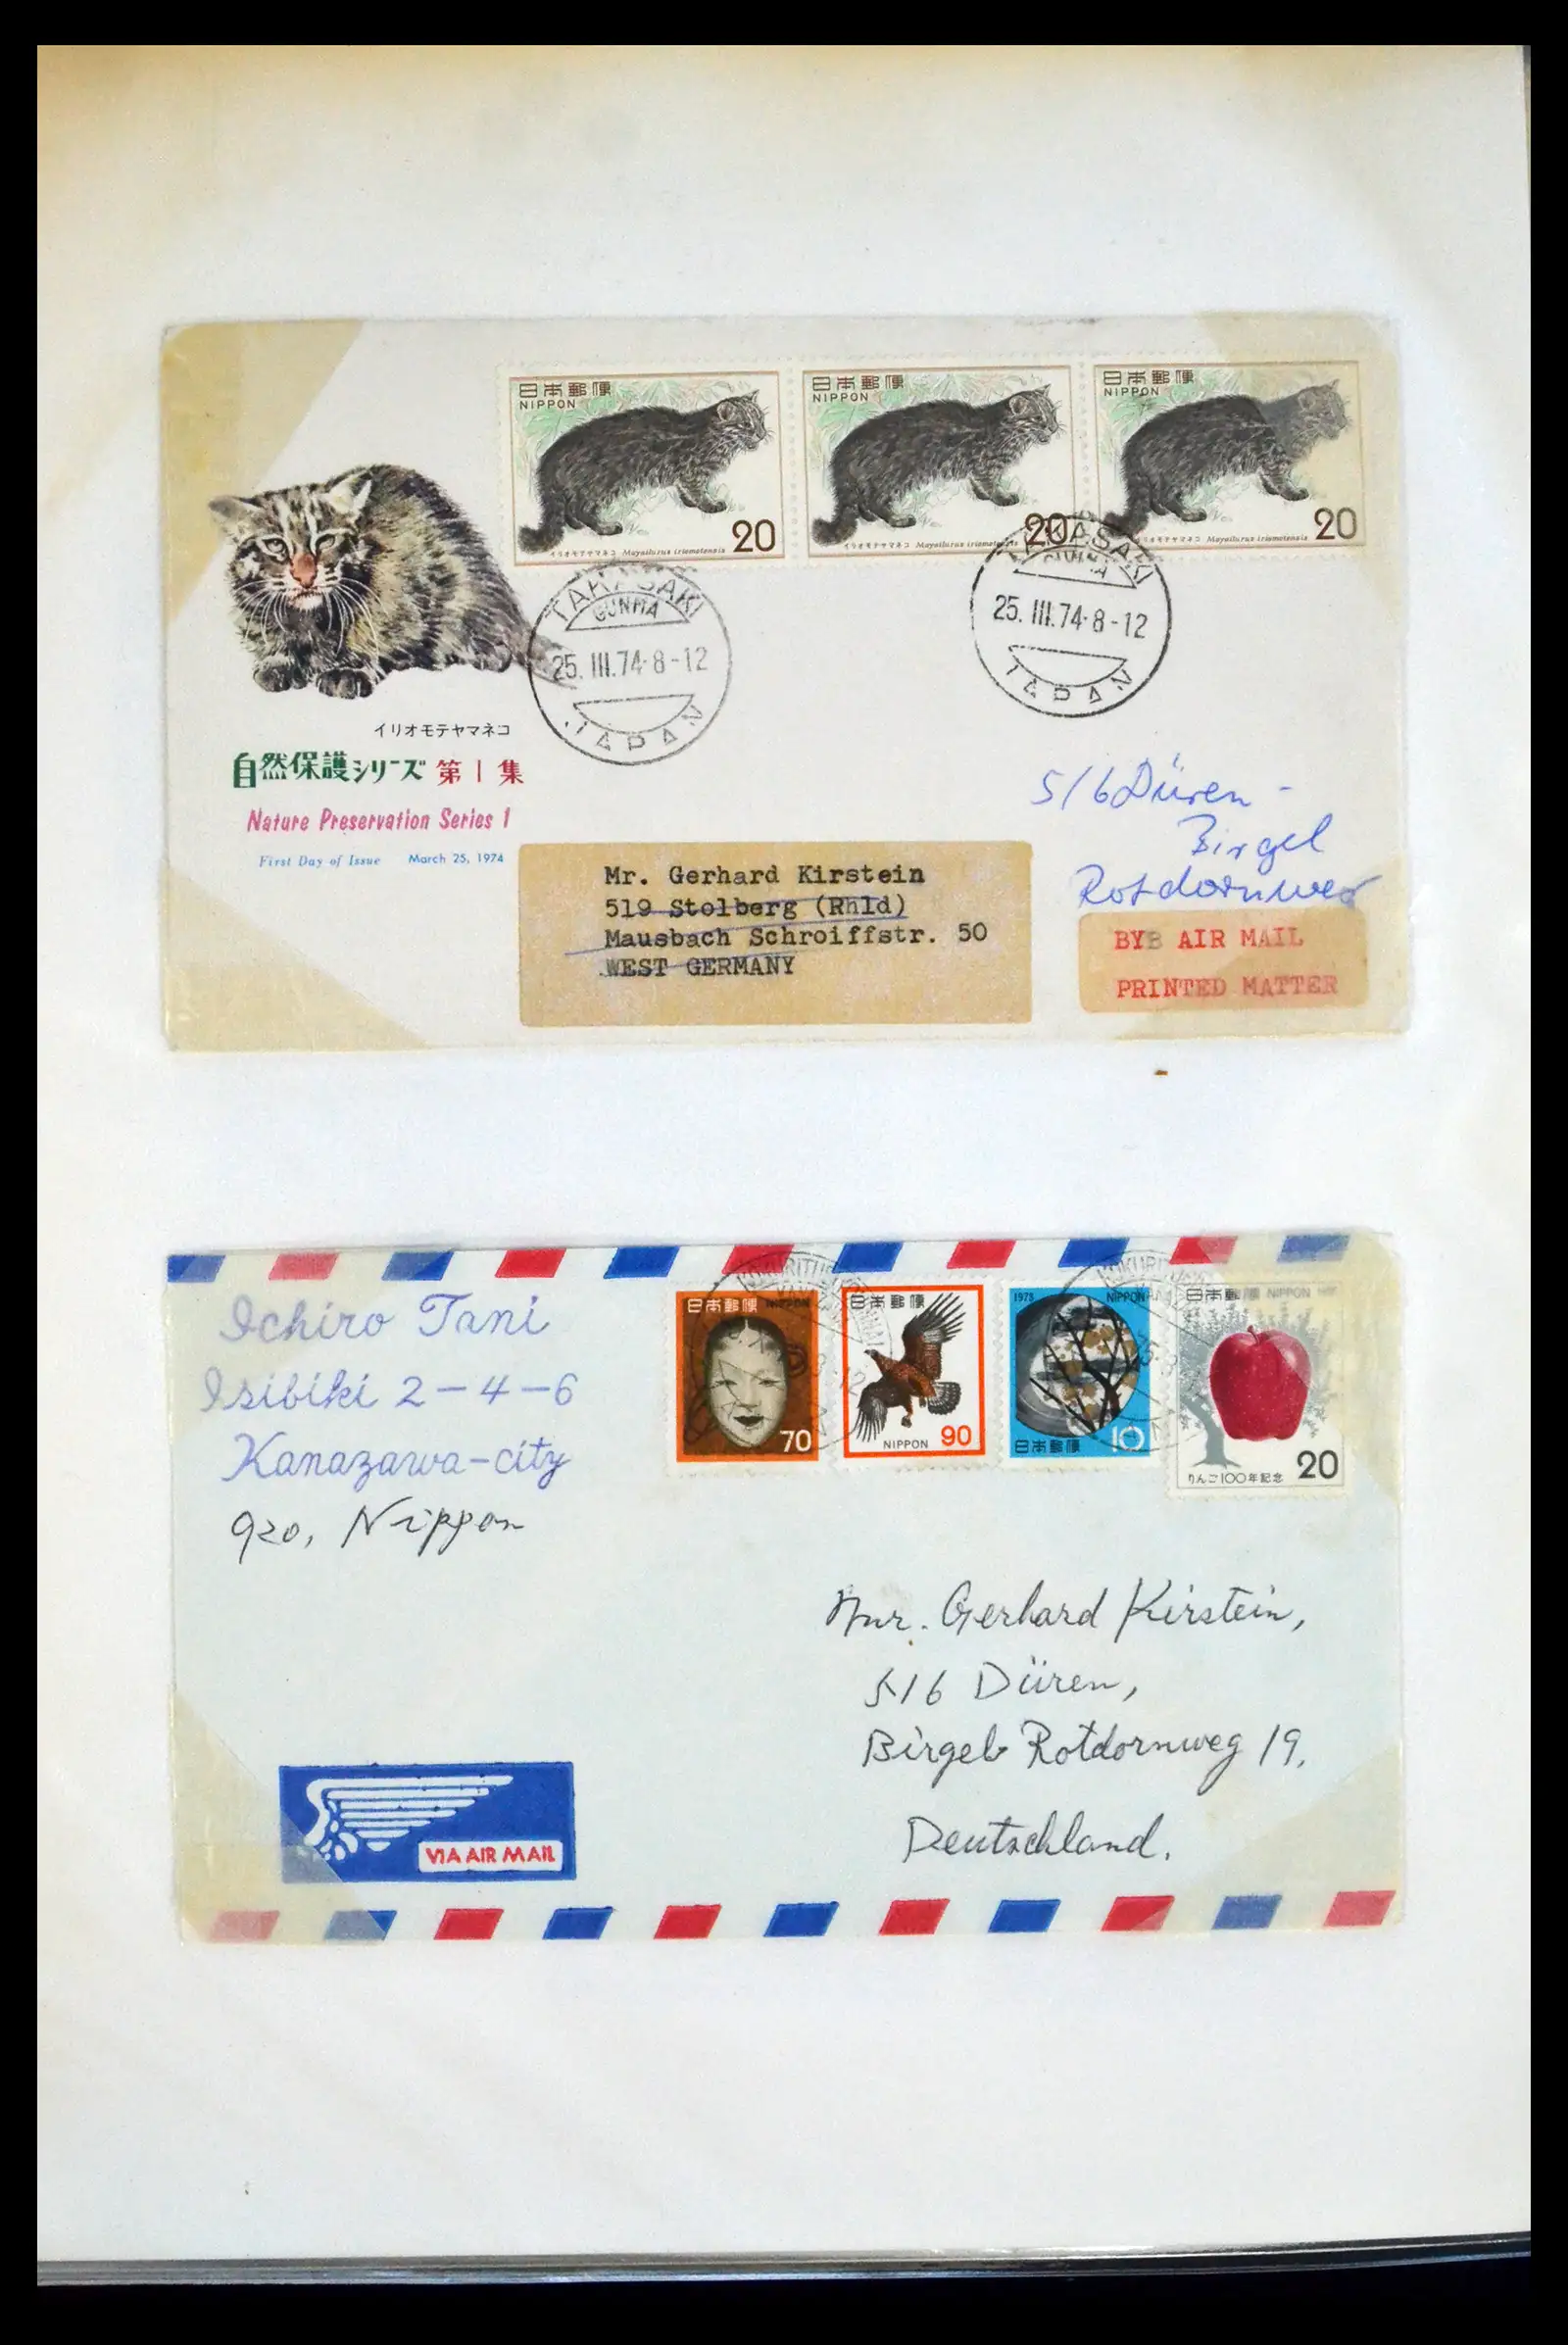 日本郵便
NIPPON
イリオモテヤマネコ Mayailurus iriomotensis
20
日本郵便
NIPPON
イリオモテヤマネコ Mayailurus iriomotensis
20
日本郵便
NIPPON
イリオモテヤマネコ Mayailurus iriomotensis
20
TAKASAKI
GUNMA
25.III.74·8-12
JAPAN
TAKASAKI
GUNMA
25.III.74·8-12
JAPAN
イリオモテヤマネコ
自然保護シリーズ 第1集
Nature Preservation Series 1
First Day of Issue March 25, 1974
516 Düren -
Birgel
Rotdornweg
Mr. Gerhard Kirstein
519 Stolberg (Rhld)
Mausbach Schroiffstr. 50
WEST GERMANY
BY AIR MAIL
PRINTED MATTER
Ichiro Tani
Isibiki 2-4-6
Kanazawa-city
920, Nippon
日本郵便 NIPPON
70
日本郵便
NIPPON 90
1973 NIPPON
日本郵便 10
日本郵便 NIPPON
りんご100年記念 20
Mr. Gerhard Kirstein,
516 Düren,
Birgel Rotdornweg 19.
Deutschland.
VIA AIR MAIL